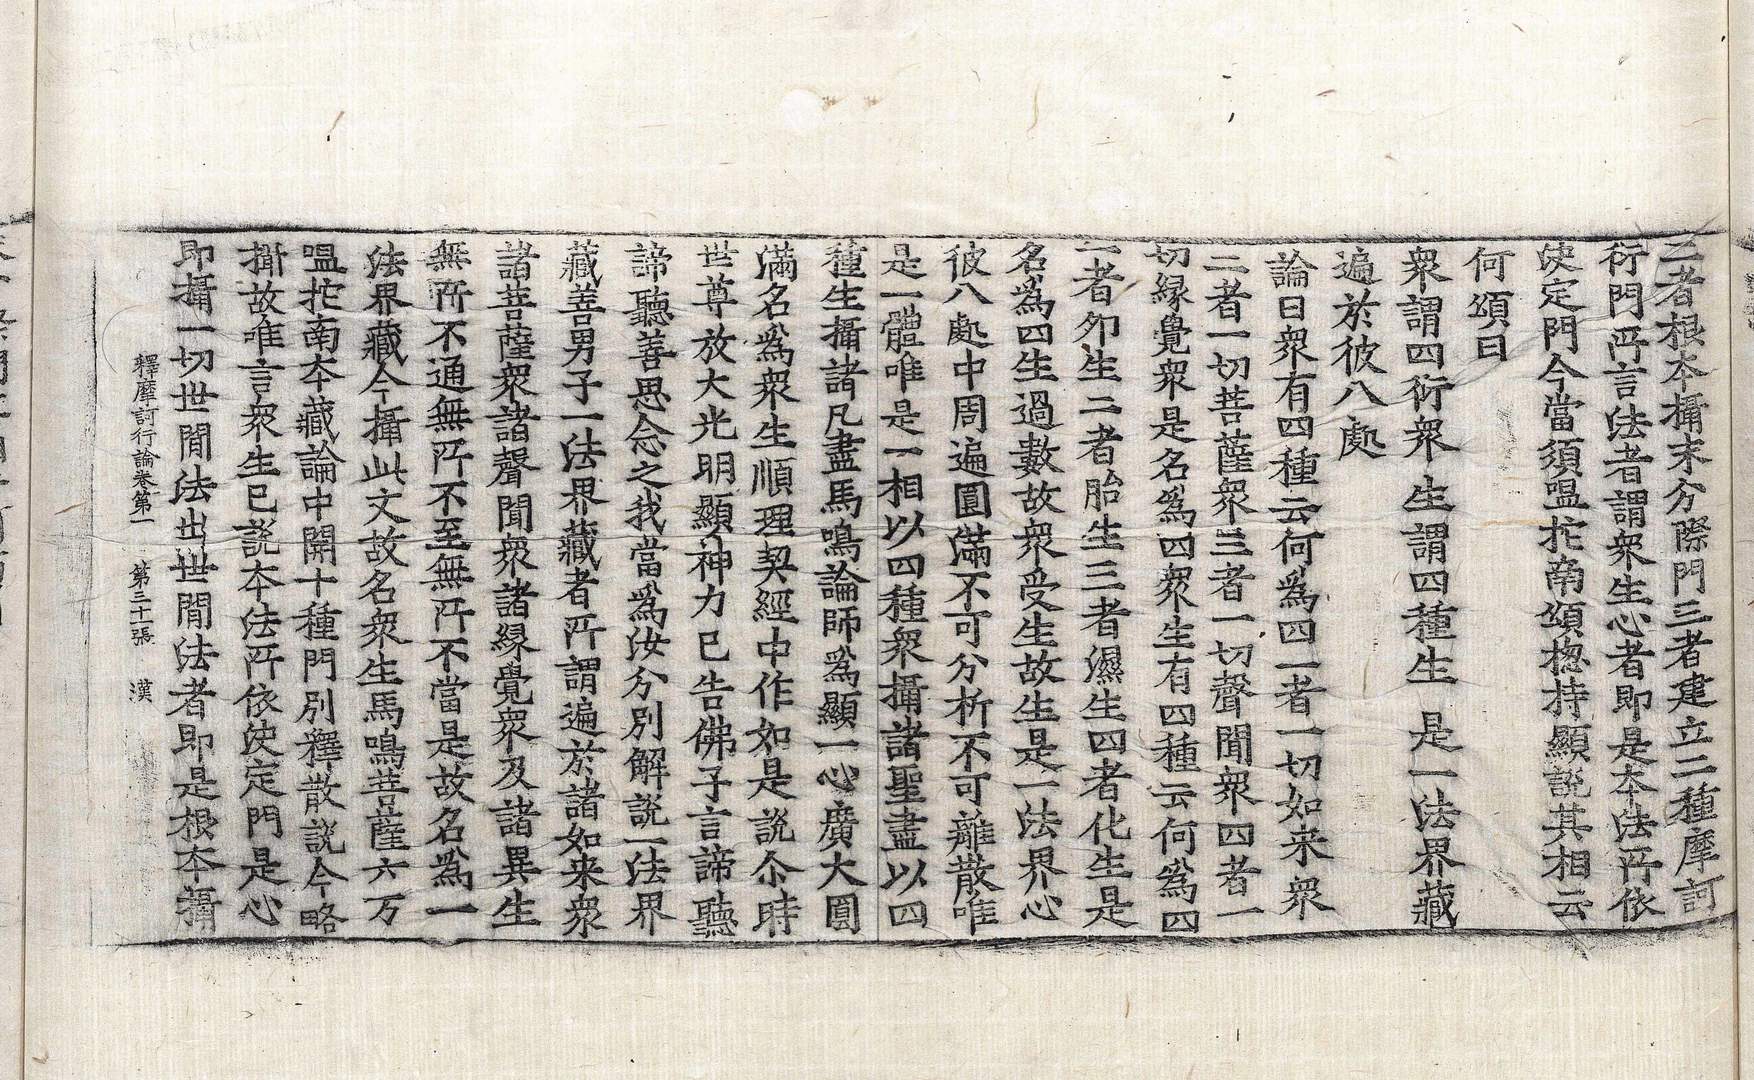 二者根本攝末分際門三者建立二種摩訶
衍門所言法者謂衆生心者即是本法所依
决定門今當須嗢拕南頌揔持顯說其相云
何頌曰
衆謂四衍衆 生謂四種生 是一法界藏
遍於彼八處
論曰衆有四種云何爲四一者一切如来衆
二者一切菩薩衆三者一切聲聞衆四者一
切縁覺衆是名爲四衆生有四種云何爲四
一者卵生二者胎生三者濕生四者化生是
名爲四生過數故衆受生故生是一法界心
彼八處中周遍圓滿不可分析不可離散唯
是一體唯是一相以四種衆攝諸聖盡以四
種生攝諸凡盡馬鳴論師爲顯一心廣大圓
滿名爲衆生順理契經中作如是說尒時
世尊放大光明顯神力已告佛子言諦聽
諦聽善思念之我當爲汝分別解說一法界
藏善男子一法界藏者所謂遍於諸如来衆
諸菩薩衆諸聲聞衆諸縁覺衆及諸異生
無所不通無所不至無所不當是故名爲一
法界藏今攝此文故名衆生馬鳴菩薩六万
嗢拕南本藏論中開十種門別釋散說今略
攝故唯言衆生已說本法所依决定門是心
即攝一切世間法出世間法者即是根本攝
釋摩訶衍論卷第一 第三十張 漢